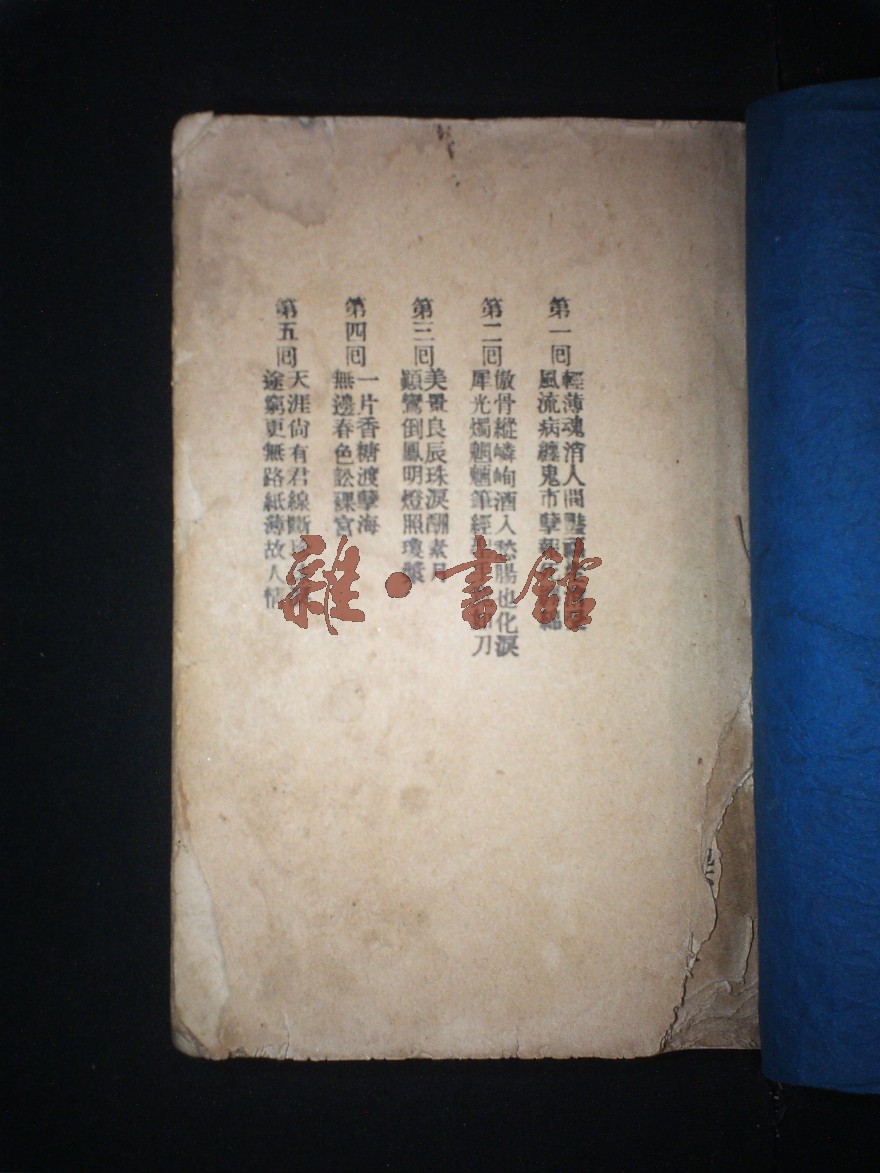 第一回
輕薄魂消人間豔
風流病纏鬼市孽報
第二回
傲骨縱嶙峋酒入愁腸也化淚
犀光燭魍魎筆經 刀
第三回
美景良辰珠淚酬素月
顚鸞倒鳳明燈照瓊
第四回
一片香糖渡孽海
無邊春色訟裸宮
第五回
天涯尙有君線斷
途窮更無路紙薄故人情
雜·書館